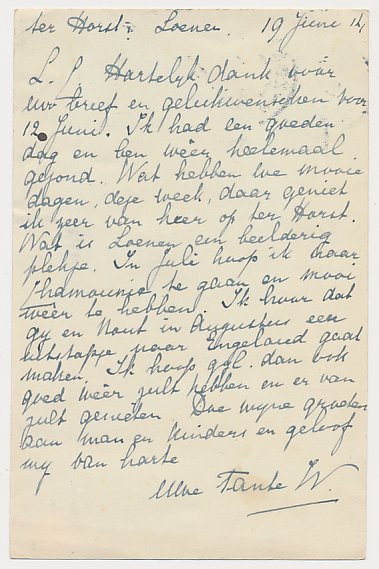 ter Horst - Loenen. 19 Juni 14
L. L. Hartelyk dank voor
uw brief en gelukwenschen voor
12 Juni. Ik had een goeden
dag en ben weer heelemaal
gezond. Wat hebben we mooie
dagen, deze week, daar geniet
ik zeer van hier op ter Horst.
Wat is Loenen een beelderig
plekje. In Juli hoop ik naar
Chamounix te gaan en mooi
weer te hebben. Ik hoor dat
gy en Nout in Augustus een
uitstapje naar Engeland gaat
maken. Ik hoop gyl. dan ook
goed weer zult hebben en er van
zult genieten. Doe myne groeten
aan man en kinders en geloof
my van harte
Uwe Tante W.